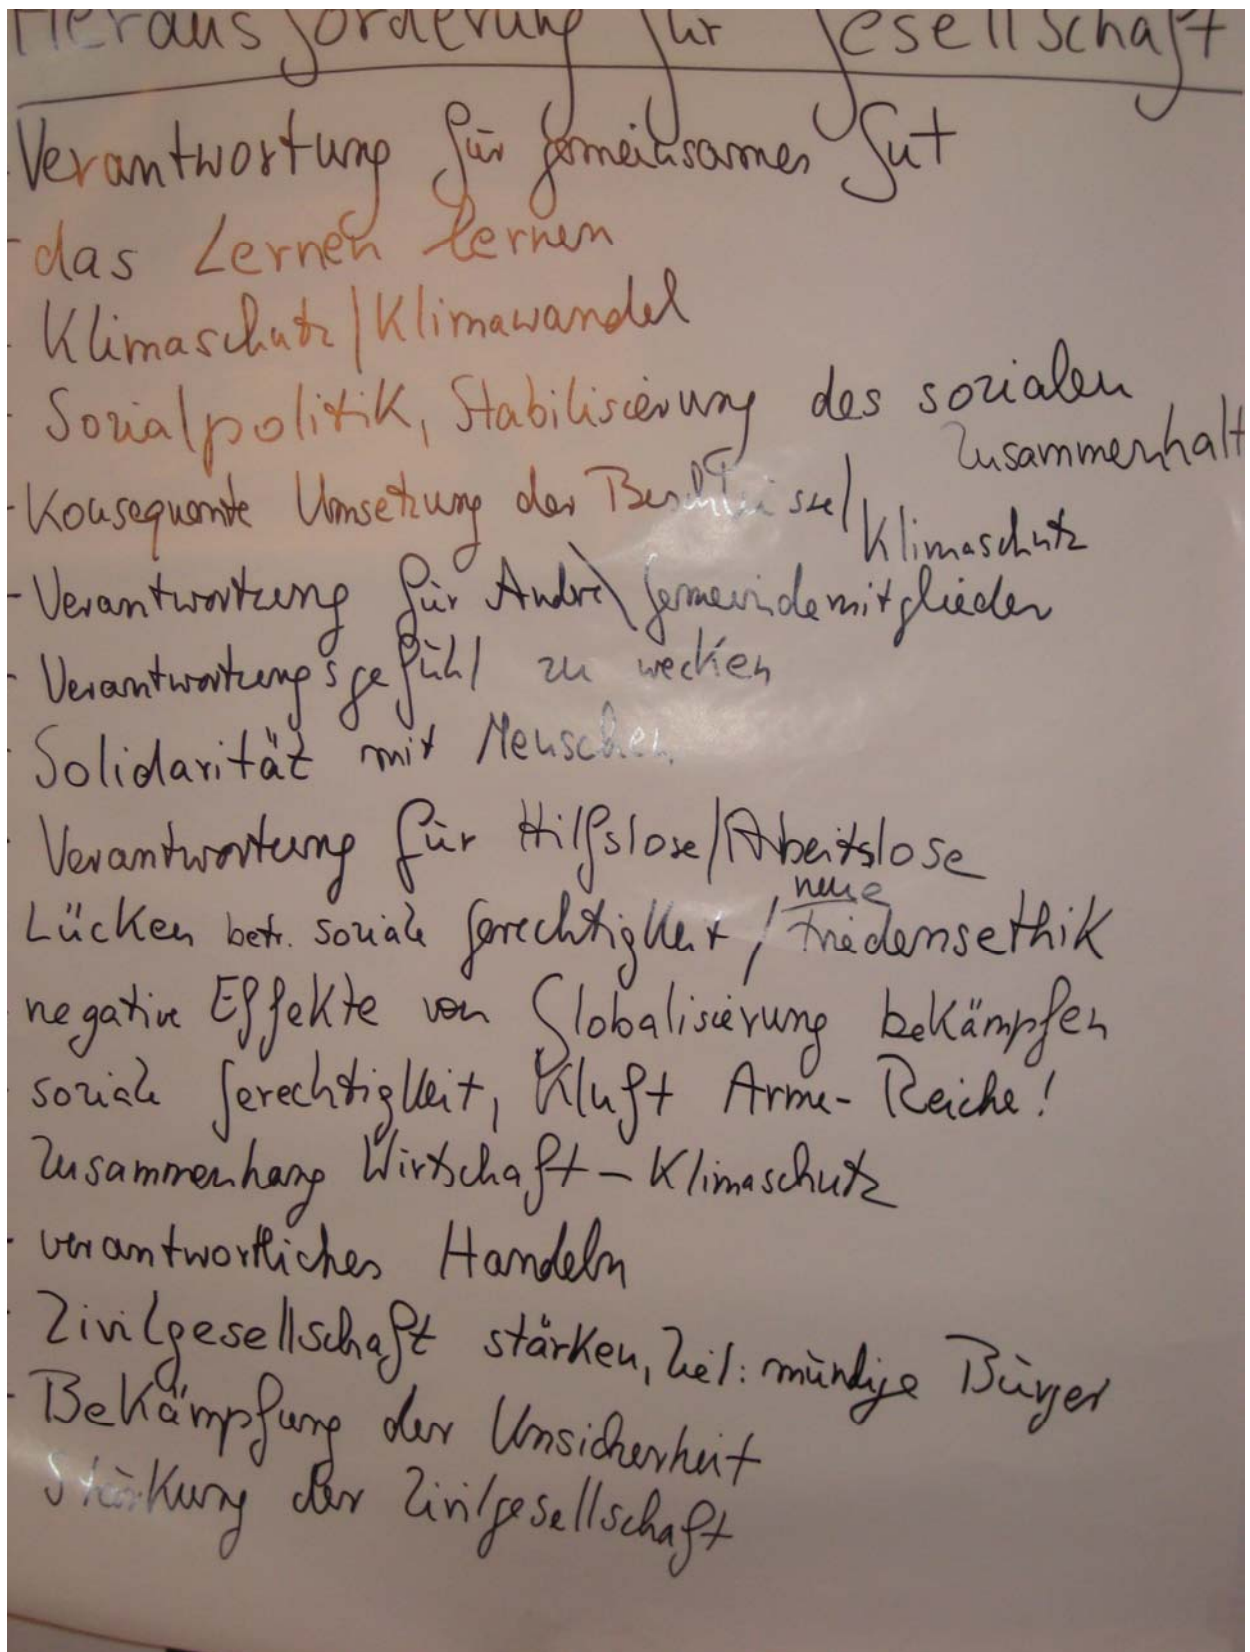 Herausforderung für Gesellschaft
Verantwortung für gemeinsames Gut
- das Lernen lernen
- Klimaschutz/Klimawandel
- Sozialpolitik, Stabilisierung des sozialen
Zusammenhalt
- Konsequente Umsetzung der Beschlüsse/
Klimaschutz
- Verantwortung für Andre\Gemeindemitglieder
- Verantwortungsgefühl zu wecken
- Solidarität mit Menschen
- Verantwortung für Hilfslose/Arbeitslose
neue
Lücken betr. soziale Gerechtigkeit / Friedensethik
negative Effekte von Globalisierung bekämpfen
- soziale Gerechtigkeit, Kluft Arme-Reiche!
Zusammenhang Wirtschaft - Klimaschutz
- verantwortliches Handeln
- Zivilgesellschaft stärken, Ziel: mündige Bürger
- Bekämpfung der Unsicherheit
Stärkung der Zivilgesellschaft